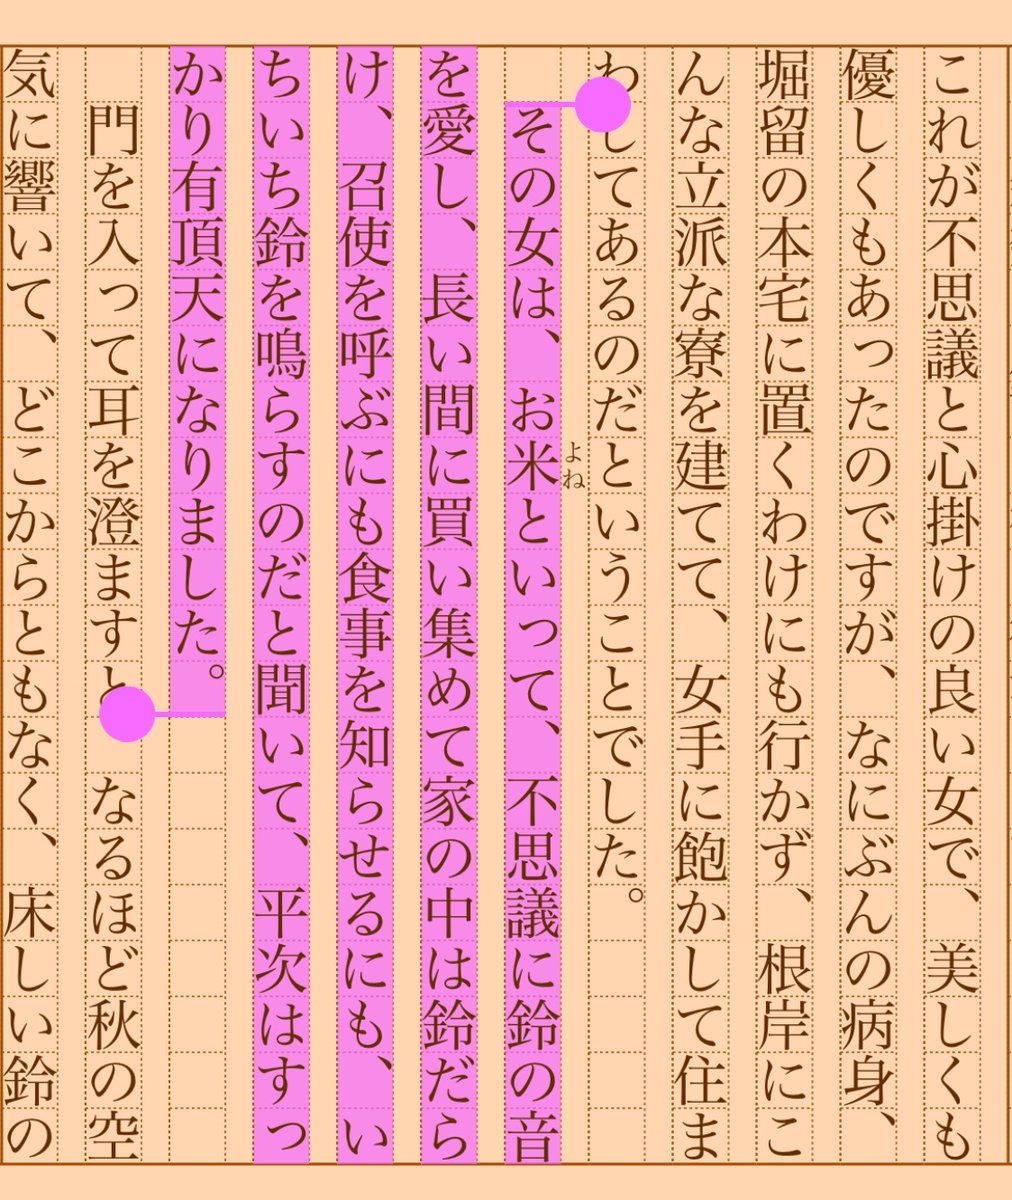 これが不思議と心掛けの良い女で、美しくも
優しくもあったのですが、なにぶんの病身、
堀留の本宅に置くわけにも行かず、根岸にこ
んな立派な寮を建てて、女手に飽かして住ま
わしてあるのだということでした。
その女は、お米といって、不思議に鈴の音
よね
を愛し、長い間に買い集めて家の中は鈴だら
け、召使を呼ぶにも食事を知らせるにも、い
ちいち鈴を鳴らすのだと聞いて、平次はすっ
かり有頂天になりました。
門を入って耳を澄ますと　なるほど秋の空
気に響いて、どこからともなく、床しい鈴の